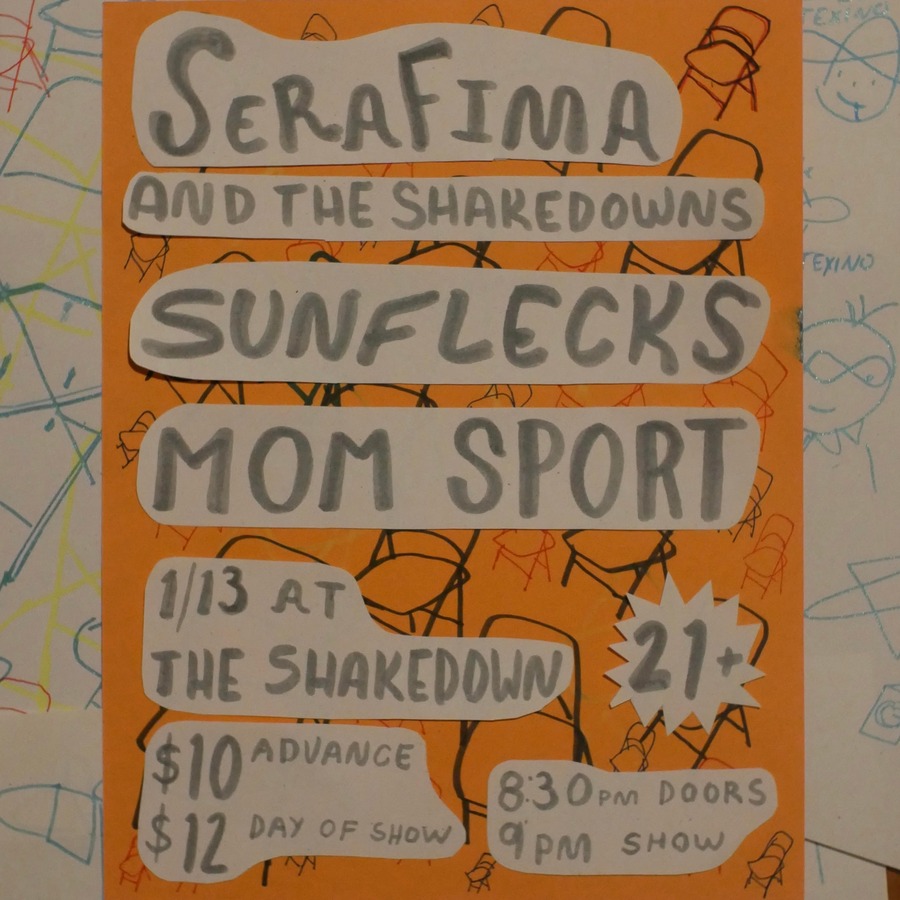 SERAFIMA
AND THE SHAKEDOWNS
SUNFLECKS
MOM SPORT
1/13 AT
THE SHAKEDOWN
21+
$10 ADVANCE
$12 DAY OF SHOW
8:30PM DOORS
9PM SHOW
TEXINO
TEXINO